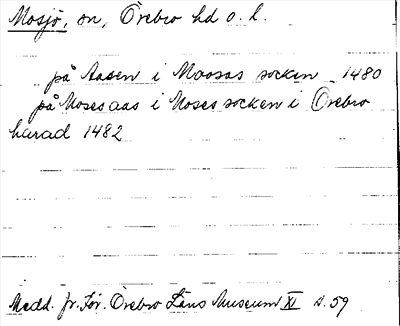 Mosjö, sn, Örebro hd o. l.
på Aasen i Moosos socken 1480
på Moses aas i Moses socken i Örebro
härad 1482
Medd. fr. För. Örebro Läns Museum XI s. 59